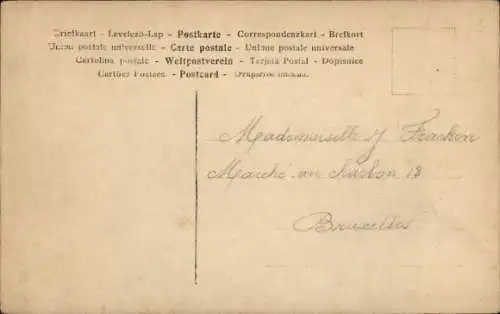 Briefkaart - Levelező-Lap - Postkarte - Correspondenzkart - Brefkort
Union postale universelle - Carte postale - Unione postale universale
Cartolina postale - Weltpostverein - Tarjeta Postal - Dopisnice
Postcard
Mademoiselle J Francken
Marché au charbon 18
Bruxelles